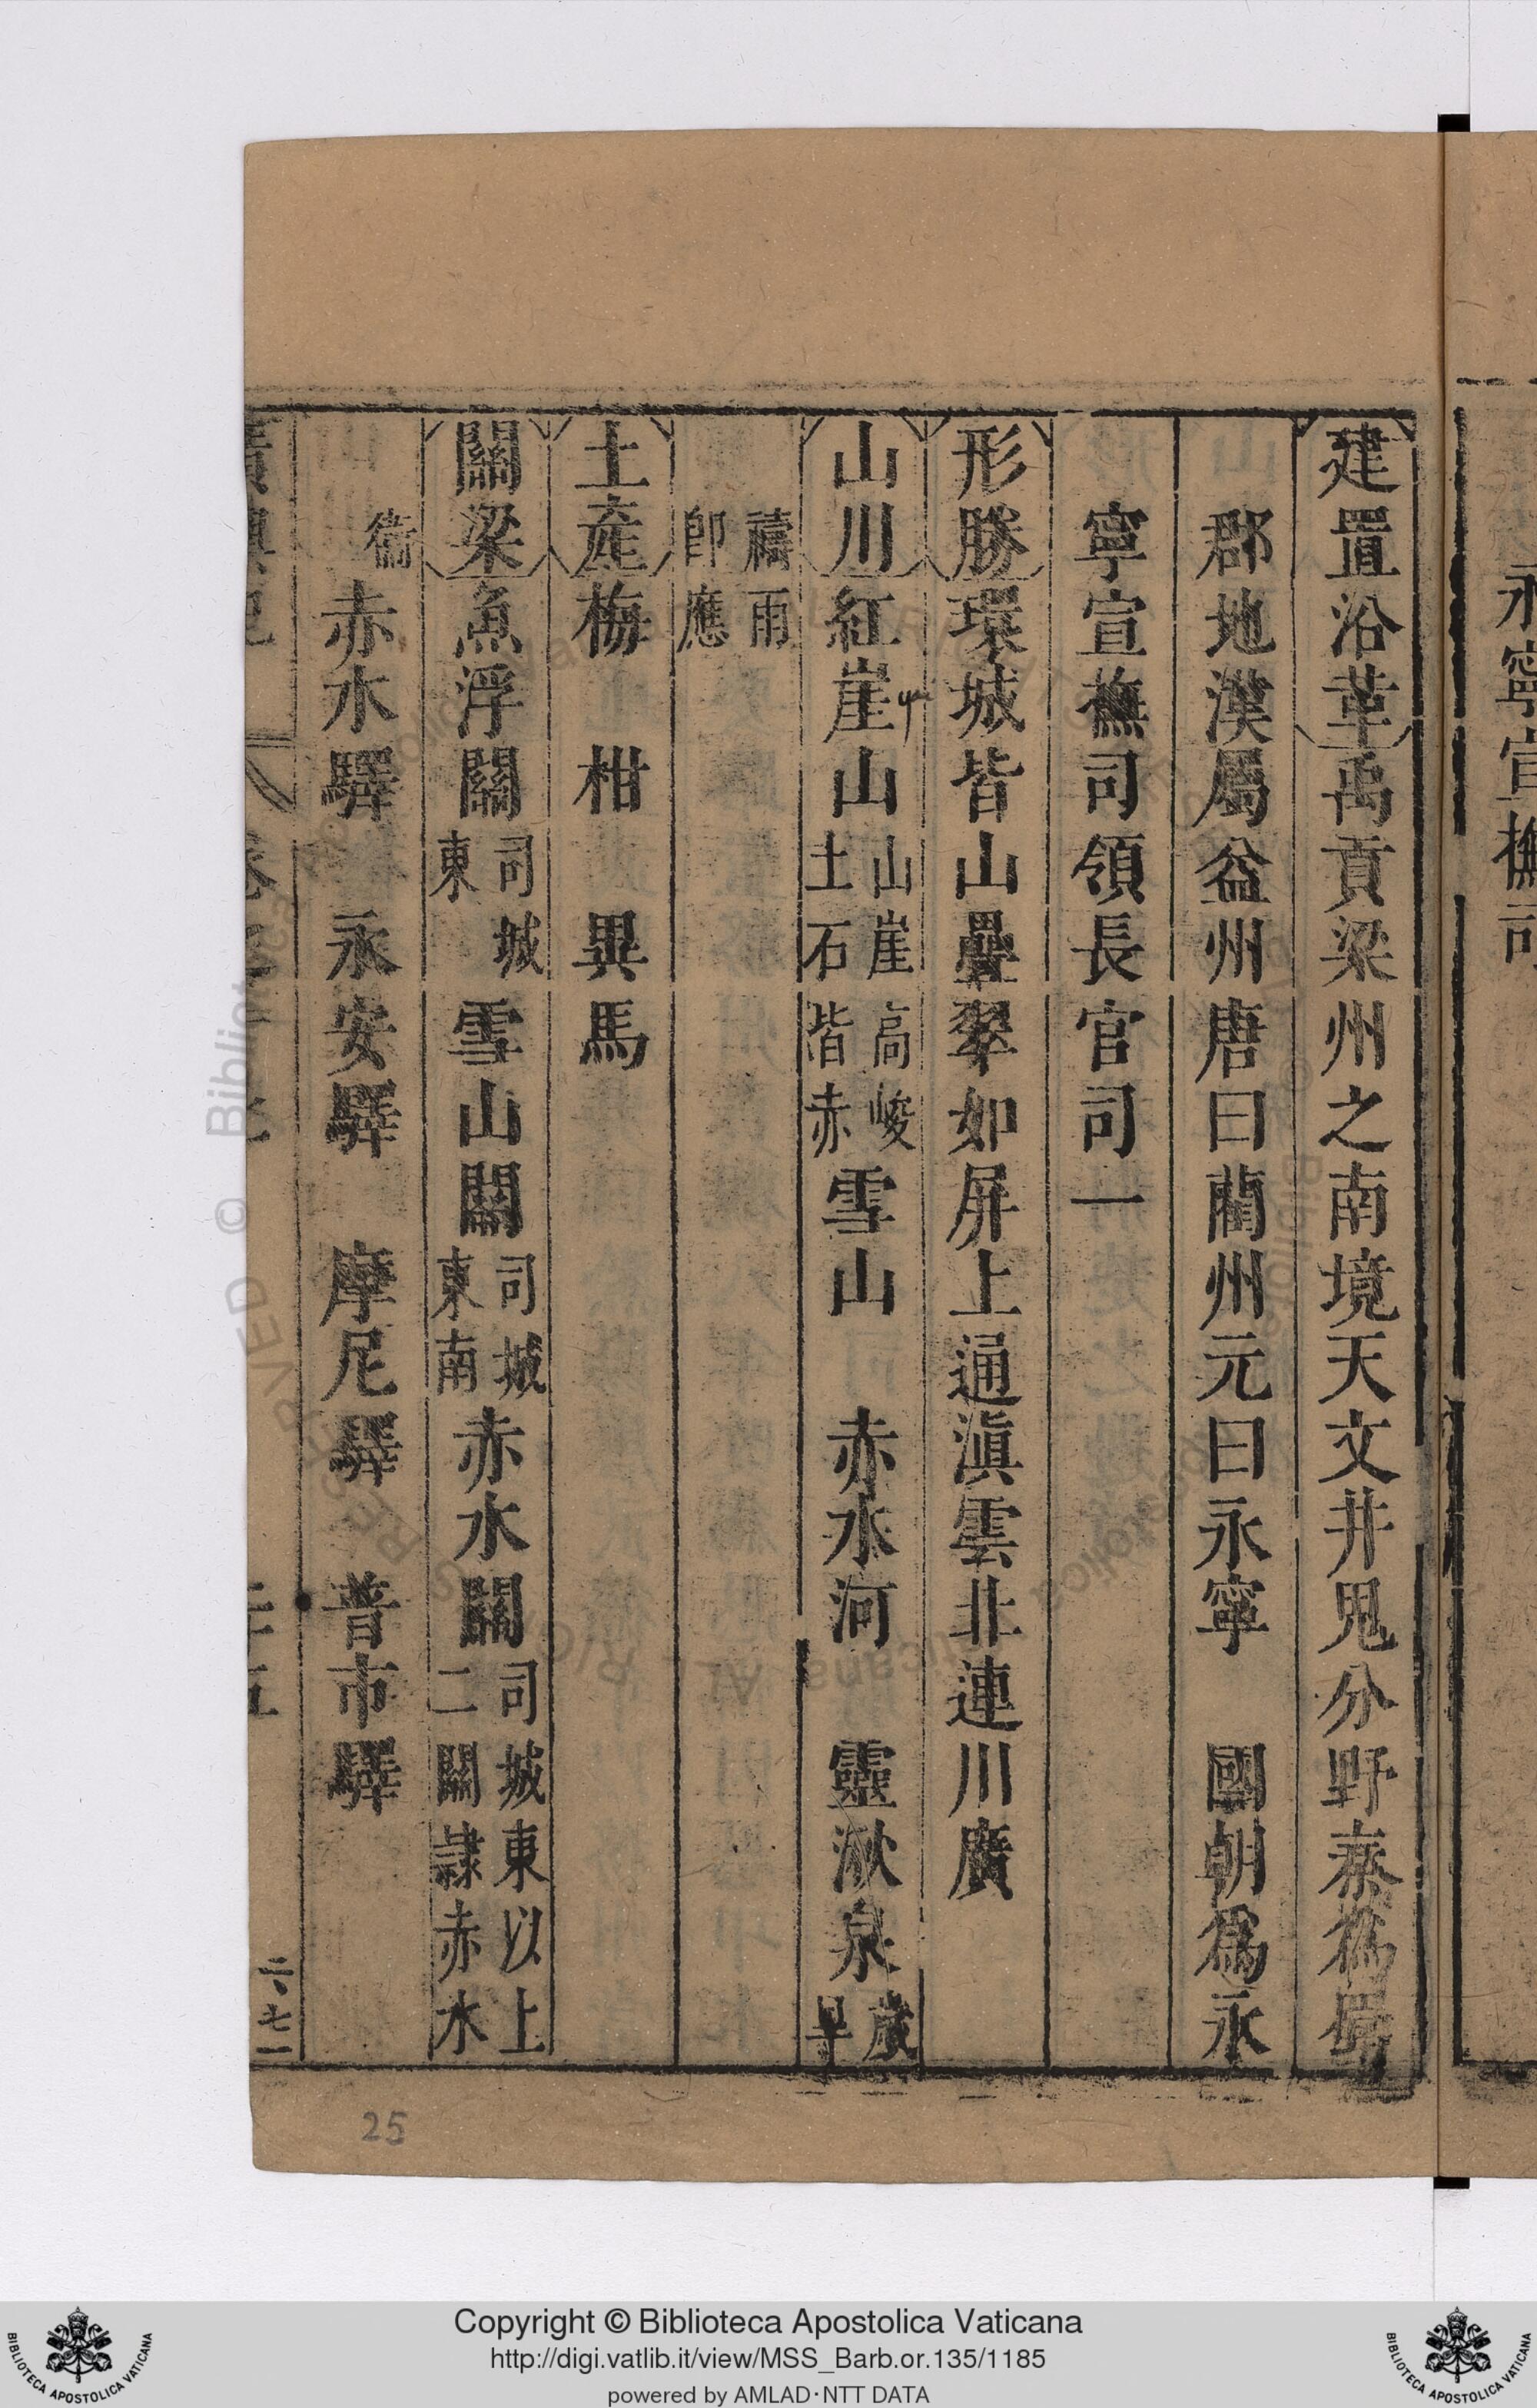 永寧宣撫司
建置沿革禹貢梁州之南境天文井鬼分野秦爲蜀
郡地漢屬益州唐曰藺州元曰永寧 國朝爲永
寧宣撫司領長官司一
形勝環城皆山疊翠如屏上通滇雲北連川廣
山川紅崖山山崖高峻土石皆赤雪山 赤水河 靈湫泉歲旱
禱雨卽應
土產梅 柑 異馬
關梁魚浮關司城東雪山關司城東南赤水關司城東以上二關隷赤水
衞赤水驛 永安驛 摩尼驛 普市驛
二七一
25
Copyright © Biblioteca Apostolica Vaticana
http://digi.vatlib.it/view/MSS_Barb.or.135/1185
powered by AMLAD·NTT DATA
BIBLIOTECA APOSTOLICA VATICANA
BIBLIOTECA APOSTOLICA VATICANA